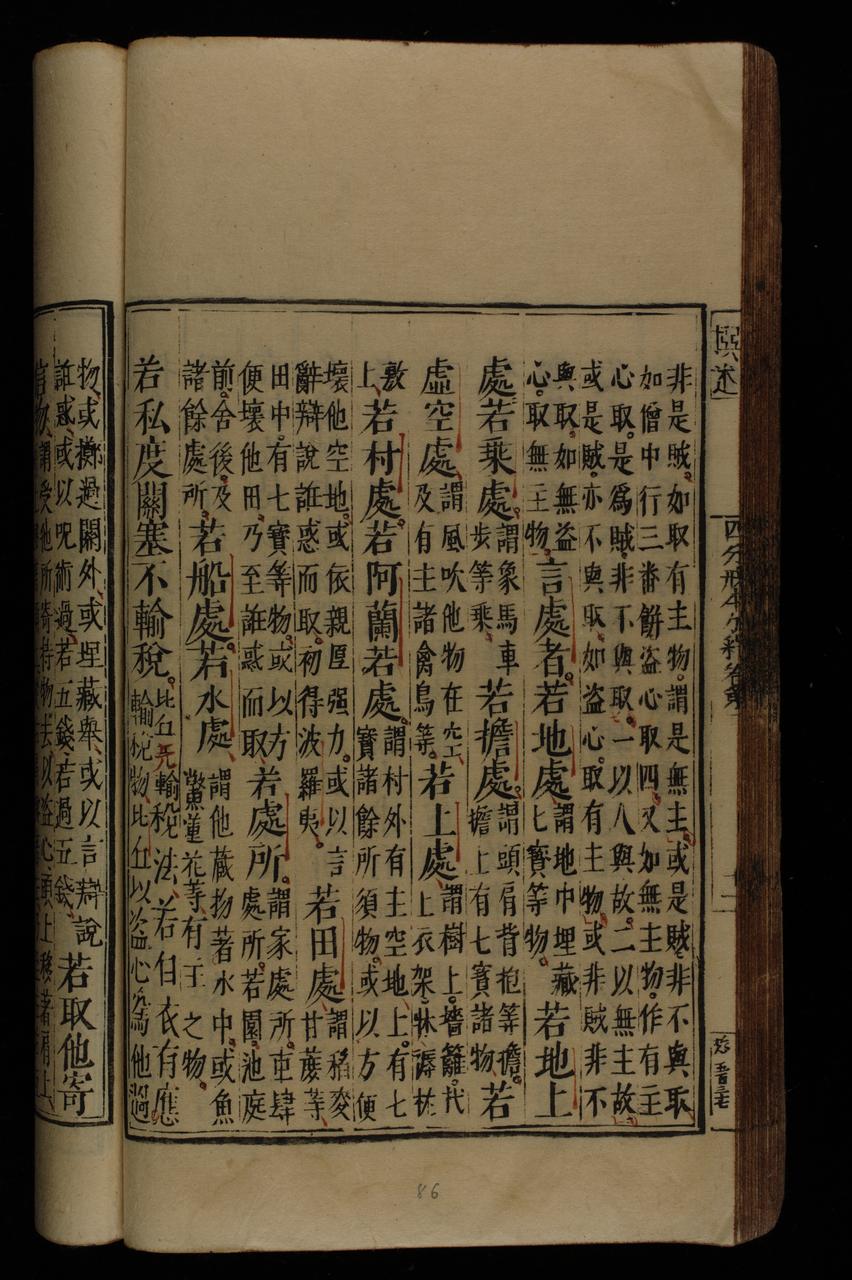 非是賊。如取有主物。謂是無主。或是賊。非不與取
如僧中行三番餅盜心取四。又如無主物。作有主
心取。是為賊。非不與取。一以人與故。二以無主故。
或是賊。亦不與取。如盜心。取有主物。或非賊非不
與取。如無盜
心。取無主物。
言處者。若地處。
謂地中埋藏
七寶等物。
若地上
處若乘處。
謂象馬車
步等乘。
若擔處。
謂頭肩背抱等擔。
擔上有七寶諸物。
若
虛空處。
謂風吹他物在空。
及有主諸禽鳥等。
若上處。
謂樹上。墻籬。代
上。衣架。牀褥枕
敷
上、
若村處。若阿蘭若處。
謂村外有主空地上。有七
寶諸餘所須物。或以方便
壞他空地。或依親厚強力。或以言
辭辯說誑惑而取。初得波羅夷。
若田處。
謂稻麥
甘蔗等、
田中。有七寶等物。或以方
便壞他田。乃至誑惑而取、
若處所。
謂家處所。市肆
處所。若園。池庭
前。舍後。及
諸餘處所。
若船處。若水處、
謂他藏物著水中。或魚
鱉蓮花等、有主之物。
若私度關塞不輸稅。
比丘无輸稅法、若白衣有應
輸稅物、比丘以盜心為他過
物、或擲過關外、或埋藏舉、或以言辯說
誑惑、或以呪術過、若五錢、若過五錢、
若取他寄
四分戒本
86